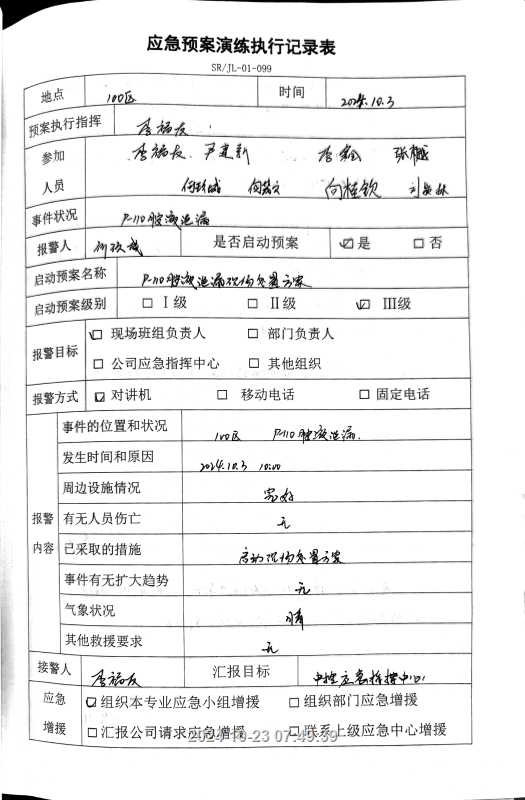 应急预案演练执行记录表
SR/JL-01-099
地点 100区 时间 2024.10.3
预案执行指挥 李福友
参加 李福友 尹建新 李鑫 张樾
人员 何桂钦
事件状况 P-110胺液泄漏
报警人 是否启动预案 ☑是 □否
启动预案名称 P-110胺液泄漏现场处置方案
启动预案级别 □Ⅰ级 □Ⅱ级 ☑Ⅲ级
报警目标 ☑现场班组负责人 □部门负责人
□公司应急指挥中心 □其他组织
报警方式 ☑对讲机 □移动电话 □固定电话
报警内容
事件的位置和状况 100区 P-110胺液泄漏.
发生时间和原因 2024.10.3 10:00
周边设施情况 完好
有无人员伤亡 无
已采取的措施 启动现场处置方案
事件有无扩大趋势 无
气象状况 晴
其他救援要求 无
接警人 李福友 汇报目标 中控应急指挥中心
应急增援 ☑组织本专业应急小组增援 □组织部门应急增援
□汇报公司请求应急增援 □联系上级应急中心增援
2024-10-23 07:49:39